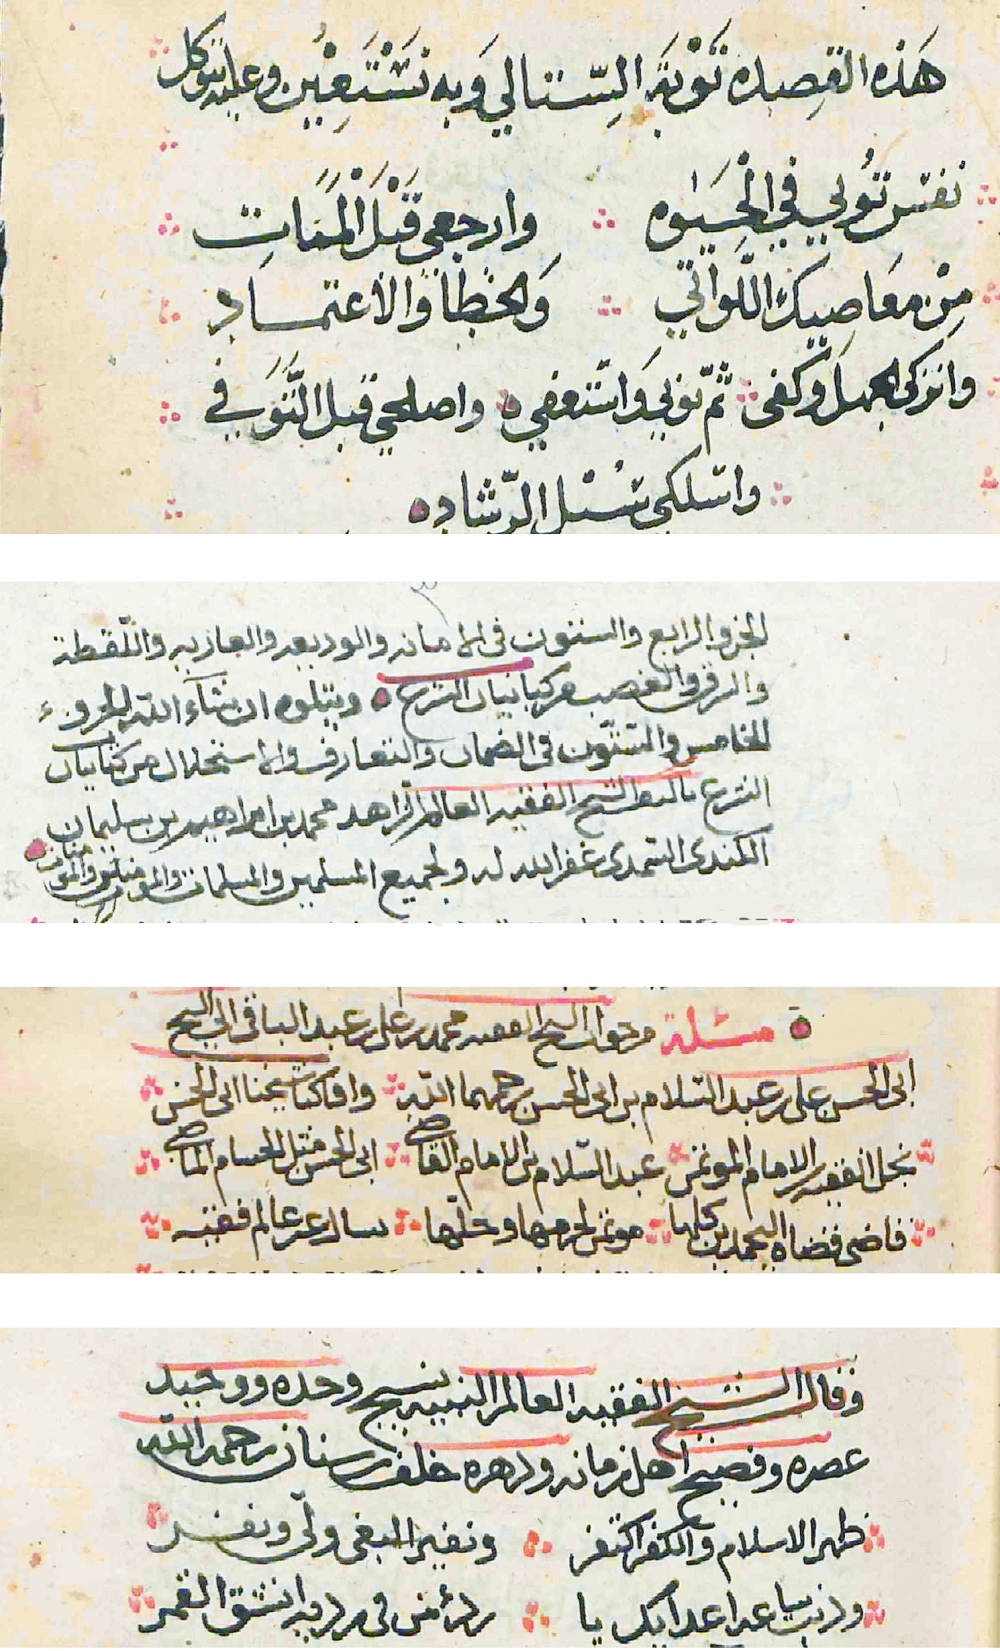 هَذه القصِيده تَوْبَة السّتالي وَبه نَسْتَعِيْن وعليه نتوكل
نفسِ تُوبي في الْحَيٰوه وارجعي قَبْلَ الْمَمَاتِ
مِنْ مَعَاصِيكَ اللَّوَاتي وَالخطا والاعتمادِ
واتركي الجهل وكفى ثمّ توبي وَاستعفي واصلحي قبل التَّوَفي
واسلكي سُبْل الرّشاد
الجزو الرابع والستون في الامانه والوديعه والعاريه واللقطة
والسرق والغصب من كتاب بيان الشرع ويتلوه ان شآء الله الجزو
الخامس والستّون في الضمان والتعارف والاستحلال من كتاب بيان
الشرع تاليف الشيخ الفقيه العالم الزاهد محمد بن ابراهيم بن سليمان
الكندي السمدي غفر الله له ولجميع المسلمين والمسلمات والمومنين والمومنات
مسئلة من جواب الشيخ الفقيه محمد بن علي بن عبد الباقي الى الشيخ
ابي الحسن علي بن عبد السلام بن ابي الحسن رحمهما الله وافا كتاب شيخنا ابي الحسن
نجل الفقيه الامام الموتمن عبد السّلام بن الامام القاضي ابي الحسن مثل الحسام الماضي
قاضي قضاه اليحمد بن كلها موتمن لحرمها وحلّها
وقال الشيخ الفقيه العالم النبيه نسيج وحده ووحيد
عصره وفصيح اهل زمانه ودهره خلف بن سنان رحمه الله
ظهر الاسلام والكفر اكتفر ونفير البغي ولّى ونفر
انشق القمر